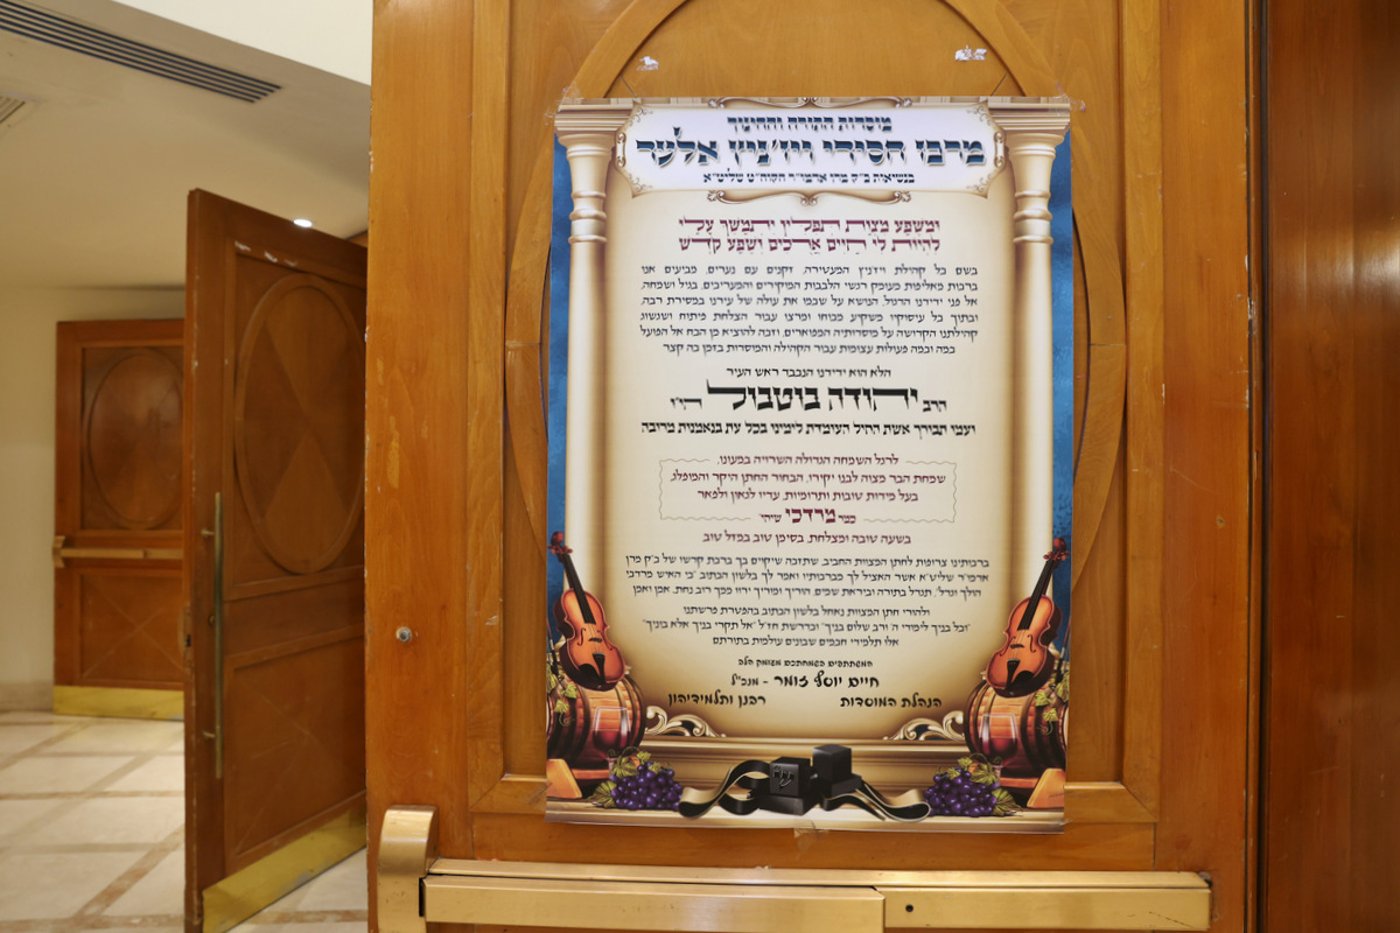 מוסדות התורה והחינוך
מרכז חסידי ויז'ניץ אלעד
בנשיאות כ"ק מרן אדמו"ר הקוה"ט שליט"א
וּמִשֶּׁפַע מִצְוַת תְּפִלִּין יִתְמַשֵּׁךְ עָלַי
לִהְיוֹת לִי חַיִּים אֲרֻכִּים וְשֶׁפַע קֹדֶשׁ
בשם כל קהילת ויז'ניץ המעטירה, זקנים עם נערים, מביעים אנו
ברכות מאליפות מעומק רגשי הלבבות המוקירים והמעריכים, בגיל ושמחה,
אל פני ידידנו הדגול, הנושא על שכמו את עולה של עירנו במסירת רבה,
ובתוך כל עיסוקיו משקיע מכוחו ומרצו עבור הצלחת פיתוח ושגשוג
קהילתנו הקדושה על מוסדותיה המפוארים, וזכה להוציא מן הכח אל הפועל
כמה וכמה פעולות עצומות עבור הקהילה והמוסדות בזמן כה קצר
הלא הוא ידידנו הנכבד ראש העיר
הרב יהודה בוטבול הי"ו
ועמי תבורך אשת החיל העומדת לימיני בכל עת בנאמנות מרובה
לרגל השמחה הגדולה השרויה במעונו,
שמחת הבר מצוה לבנו יקירו, הבחור החתן היקר והמופלג,
בעל מידות טובות ותרומיות, עדיו לגאון ולפאר
כמר מרדכי שיחי'
בשעה טובה ומצלחת, בסימן טוב במזל טוב
ברכותינו צרופות לחתן המצוות החביב, שתזכה שיקויים בך ברכת קדשו של כ"ק מרן
אדמו"ר שליט"א אשר האציל לך מברכותיו ואמר לך בלשון הכתוב, "כי האיש מרדכי
הולך וגדל", תגדל בתורה וביראת שמים, הוריך ומוריך ירוו ממך רוב נחת, אמן ואמן
ולהורי חתן המצוות נאחל בלשון הכתוב בהפטרת פרשתנו
"וכל בניך לימודי ה' ורב שלום בניך" וכדרשת חז"ל "אל תקרי בניך אלא בוניך"
אלו תלמידי חכמים שבונים עולמית בתורתם
המשתתפים בשמחתכם מעומק הלב
חיים יוסף זומר - מנכ"ל
הנהלת המוסדות רבנן ותלמידיהון
ש